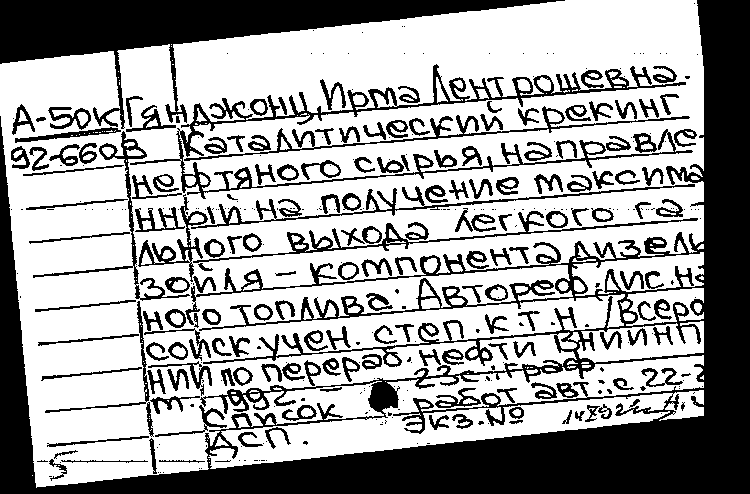 А-50К Гянджонц, Ирма Лентрошевна.
92-660В Каталитический крекинг
нефтяного сырья, направле-
нный на получение максима
льного выхода легкого га-
зойля - компонента дизель
ного топлива: Автореф. дис. на
соиск. учен. степ. к.т.н. /Всеро
НИИ по перераб. нефти ВНИИНП
м., 1992. 23с.: граф.
Список работ авт.: с. 22-2
ДСП. Экз. №
5